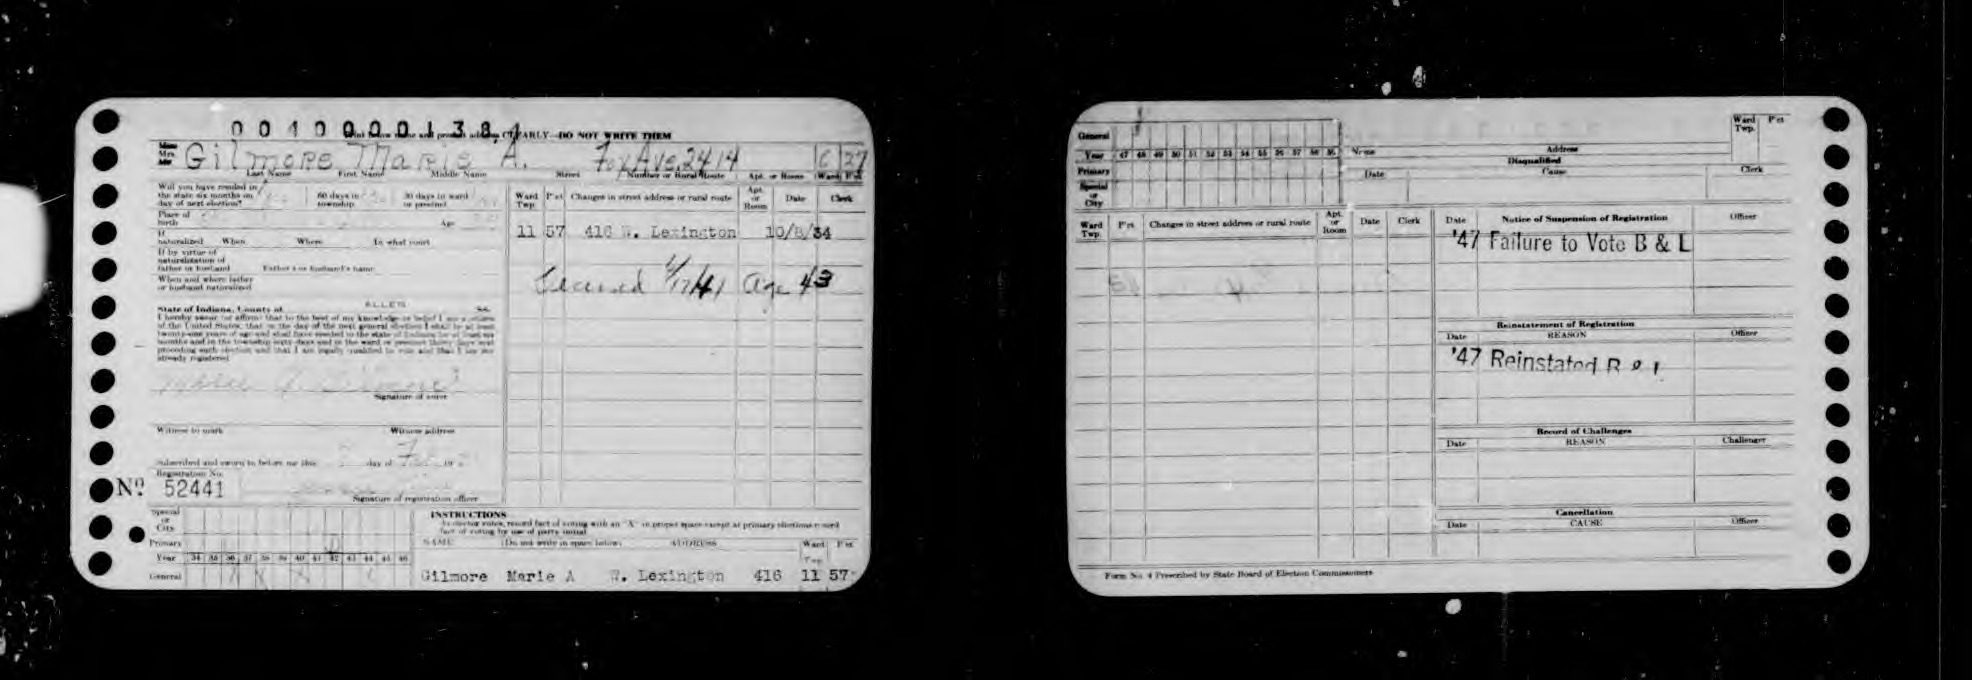 0040000138
CLEARLY—DO NOT WRITE THEM
Mrs.
Gilmore Marie A. Fox Ave. 2414 6 27
Last Name First Name Middle Name Street Number or Rural Route Apt. or Room Ward Pct
Will you have resided in
the state six months on
day of next election?
60 days in
township
30 days in ward
or precinct
Place of
birth
Age
If
naturalized When Where In what court
If by virtue of
naturalization of
father or husband Father's or husband's name
When and where father
or husband naturalized
State of Indiana, County of ALLEN SS.
I hereby swear (or affirm) that to the best of my knowledge or belief I am a citizen
of the United States, that on the day of the next general election I shall be at least
twenty-one years of age and shall have resided in the state of Indiana for at least six
months and in the township sixty days and in the ward or precinct thirty days next
preceding such election and that I am legally qualified to vote and that I am not
already registered
Marie A. Gilmore
Signature of voter
Witness to mark Witness address
Subscribed and sworn to before me this day of
Registration No.
No. 52441
Signature of registration officer
Ward Twp. P'ct Changes in street address or rural route Apt. or Room Date Clerk
11 57 416 W. Lexington 10/8/34
Age 43
Special
or
City
Primary
Year 34 35 36 37 38 39 40 41 42 43 44 45 46
General
INSTRUCTIONS
As elector votes, record fact of voting with an "X" in proper space except at primary elections record
fact of voting by use of party initial
NAME (Do not write in space below) ADDRESS Ward Twp. P'ct
Gilmore Marie A W. Lexington 416 11 57
General
Year 47 48 49 50 51 52 53 54 55 56 57 58
Primary
Special
or
City
Name Address
Ward Twp. P'ct
Disqualified
Date Cause Clerk
Ward Twp. P'ct Changes in street address or rural route Apt. or Room Date Clerk
Date Notice of Suspension of Registration Officer
'47 Failure to Vote B & L
Reinstatement of Registration
Date REASON Officer
'47 Reinstated
Record of Challenges
Date REASON Challenger
Cancellation
Date CAUSE Officer
Form No. 4 Prescribed by State Board of Election Commissioners